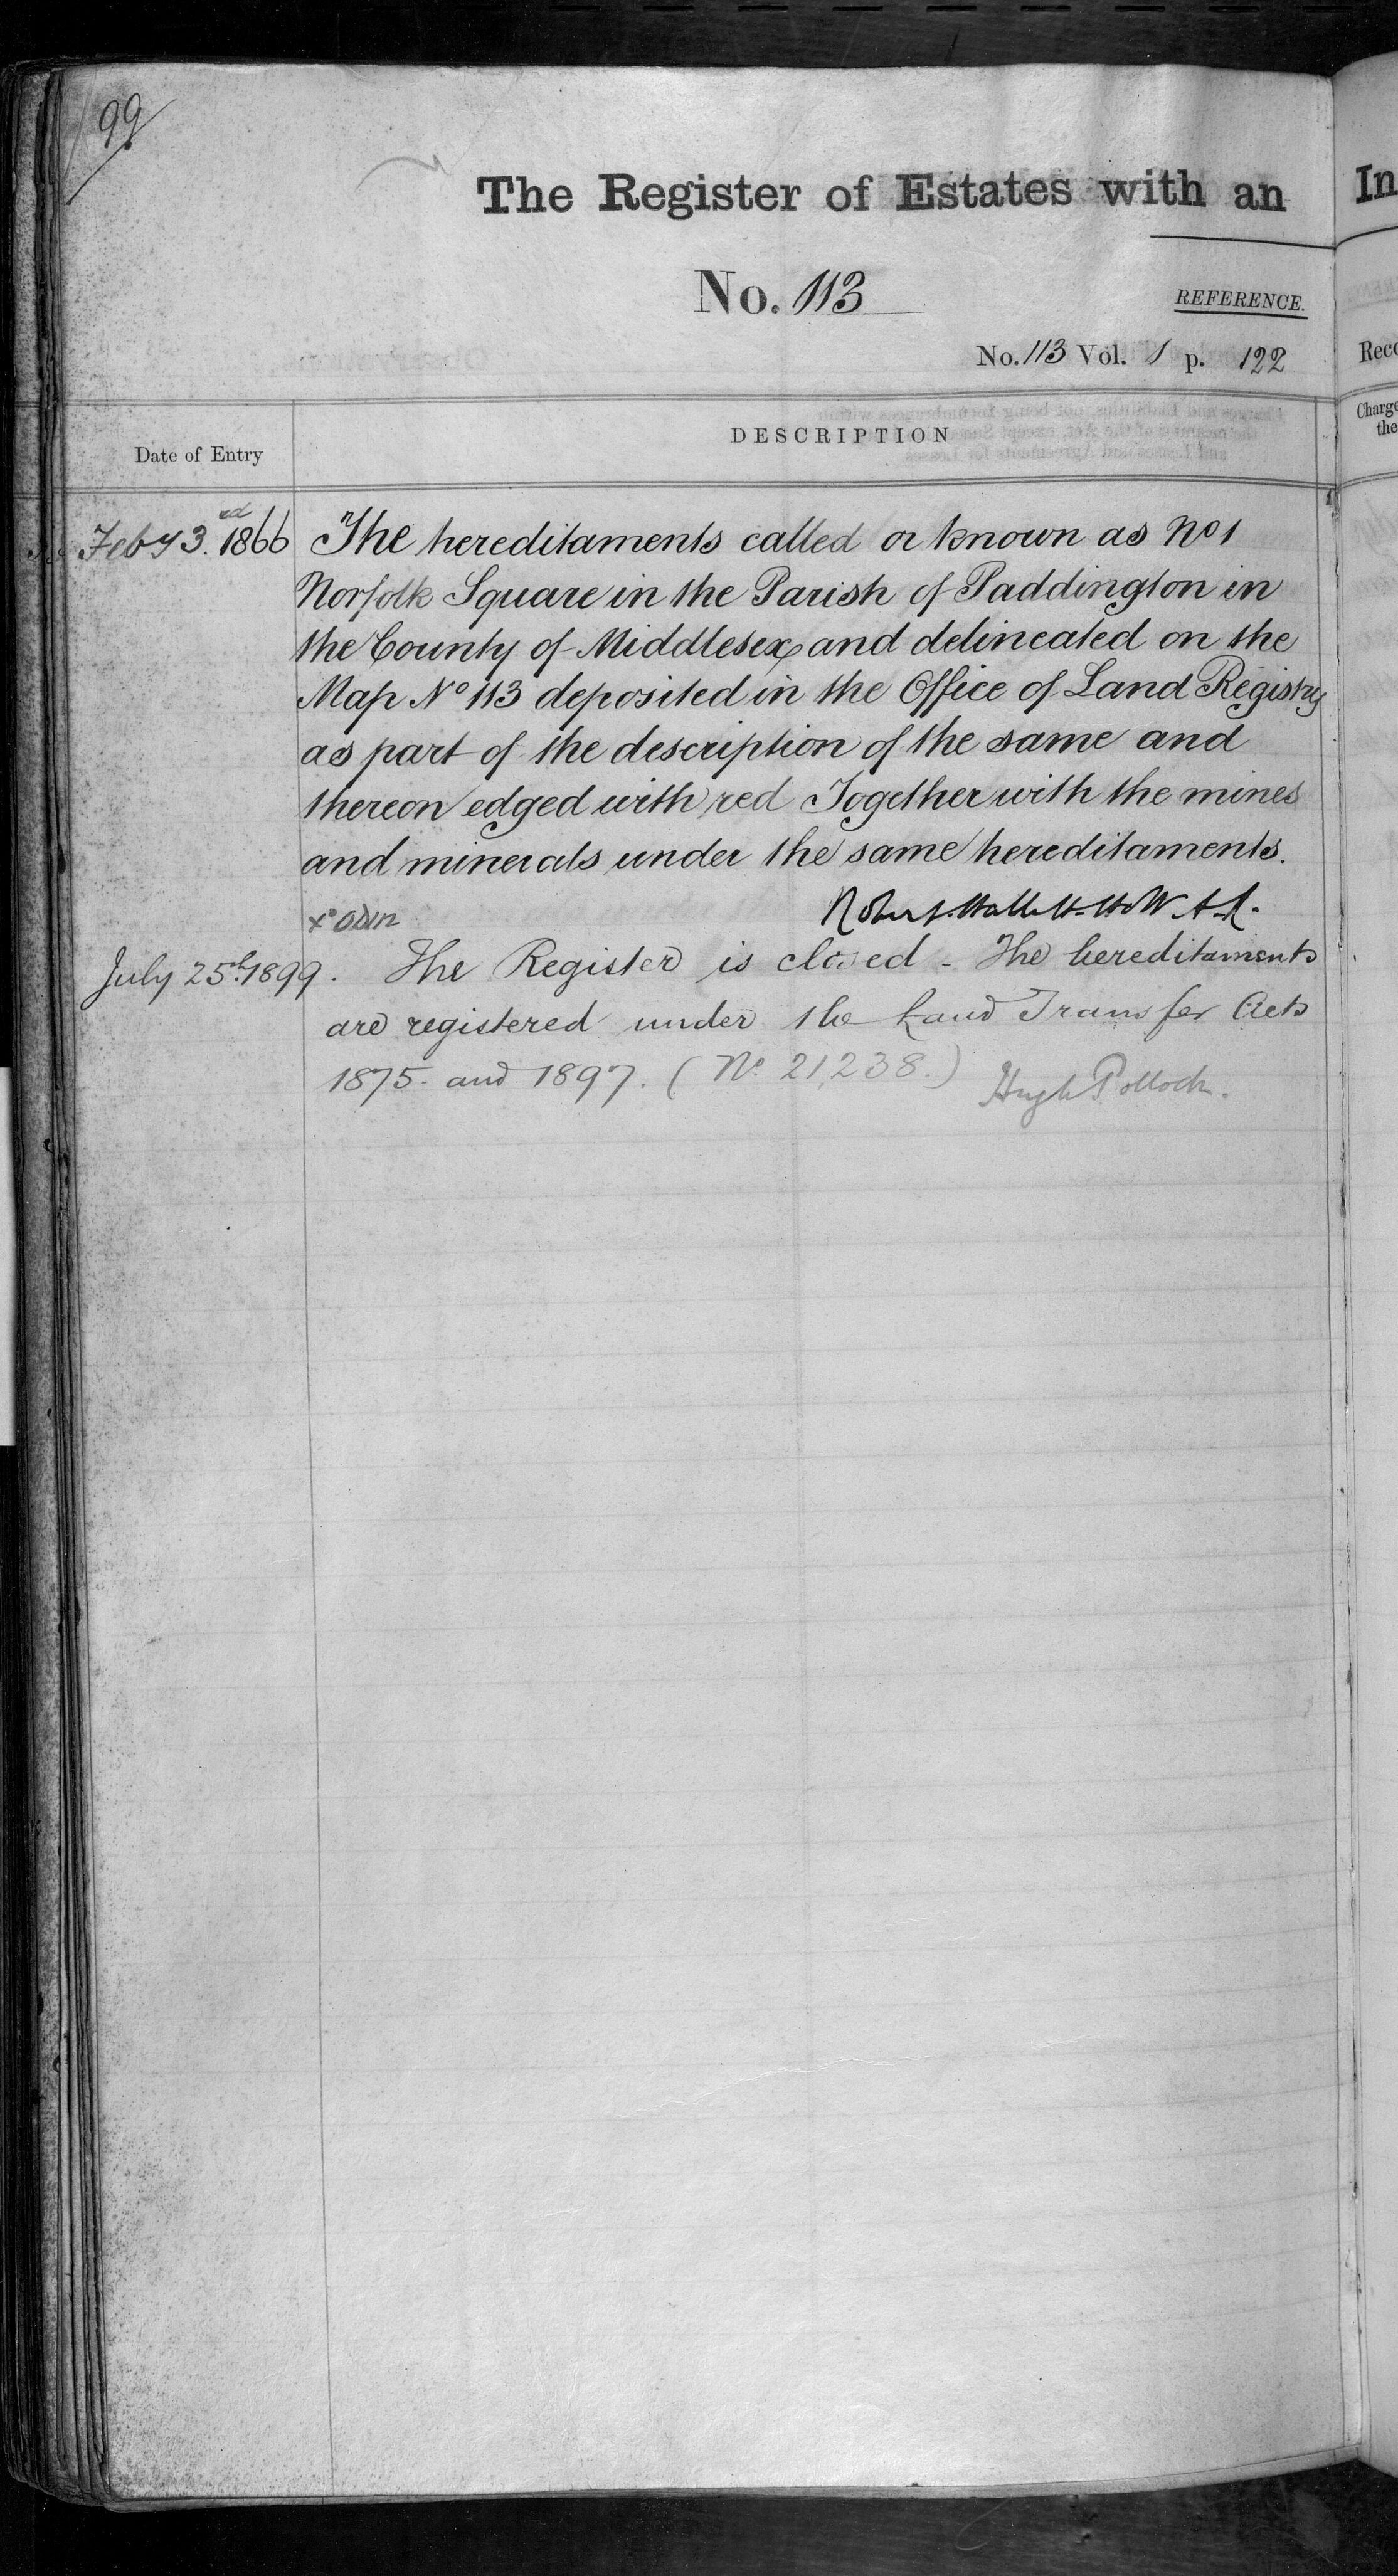 99
The Register of Estates with an
In
No. 113
REFERENCE.
No. 113 Vol. 1 p. 122
Date of Entry
DESCRIPTION
Charge
the
Feby 3rd. 1866 The hereditaments called or known as No 1
Norfolk Square in the Parish of Paddington in
the County of Middlesex and delineated on the
Map No 113 deposited in the Office of Land Registry
as part of the description of the same and
thereon edged with red Together with the mines
and minerals under the same hereditaments.
July 25th. 1899. The Register is closed - The hereditaments
are registered under the Land Transfer Acts
1875. and 1897. (No. 21,238.)
Hugh Pollock.